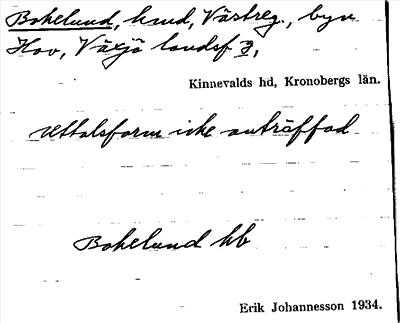 Bokelund, hmd, Västreg., byn
Hov, Växjö landsf 3,
Kinnevalds hd, Kronobergs län.
Uttalsform icke anträffad
Bokelund hb
Erik Johannesson 1934.